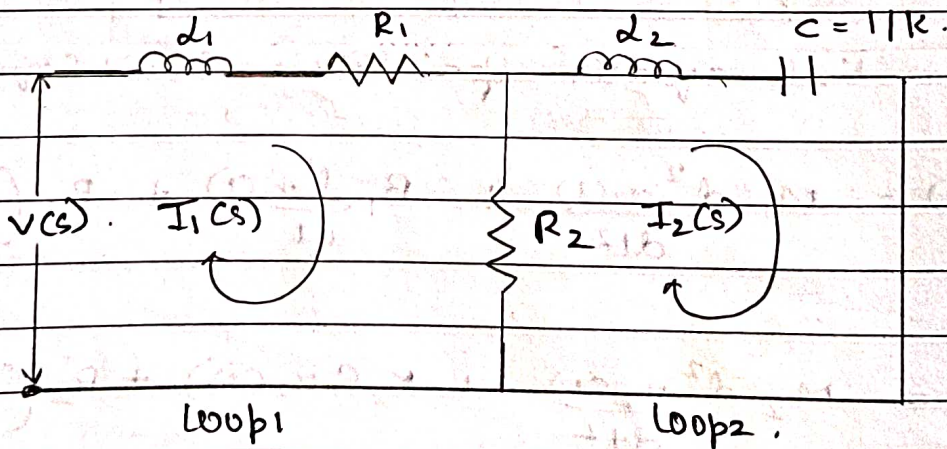 L1 R1 L2 C = 1/K.
V(s). I1(s) R2 I2(s)
Loop1 Loop2.